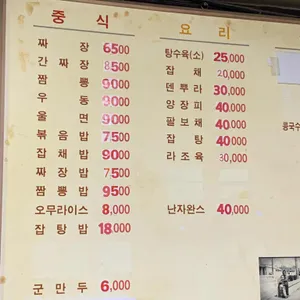 중 식
짜 장 6500
간 짜 장 8500
짬 뽕 9000
우 동 9000
울 면 9000
볶 음 밥 7500
잡 채 밥 9000
짜 장 밥 7500
짬 뽕 밥 9500
오므라이스 8,000
잡 탕 밥 18,000
군 만 두 6,000
요 리
탕수육(소) 25,000
잡 채 20,000
덴 뿌 라 30,000
양 장 피 40,000
팔 보 채 40,000
잡 탕 40,000
라 조 육 30,000
난자완스 40,000
콩국수